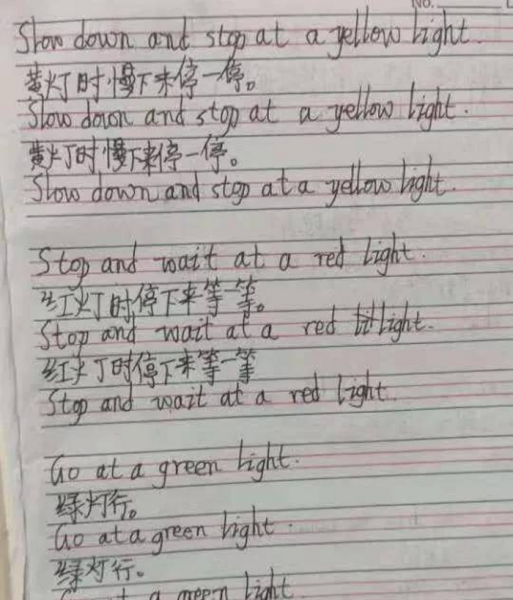 No.
Slow down and stop at a yellow light.
黄灯时慢下来停一停。
Slow down and stop at a yellow light.
黄灯时慢下来停一停。
Slow down and stop at a yellow light.
Stop and wait at a red light.
红灯时停下来等一等。
Stop and wait at a red light.
红灯时停下来等一等
Stop and wait at a red light.
Go at a green light.
绿灯行。
Go at a green light.
绿灯行。
a green light